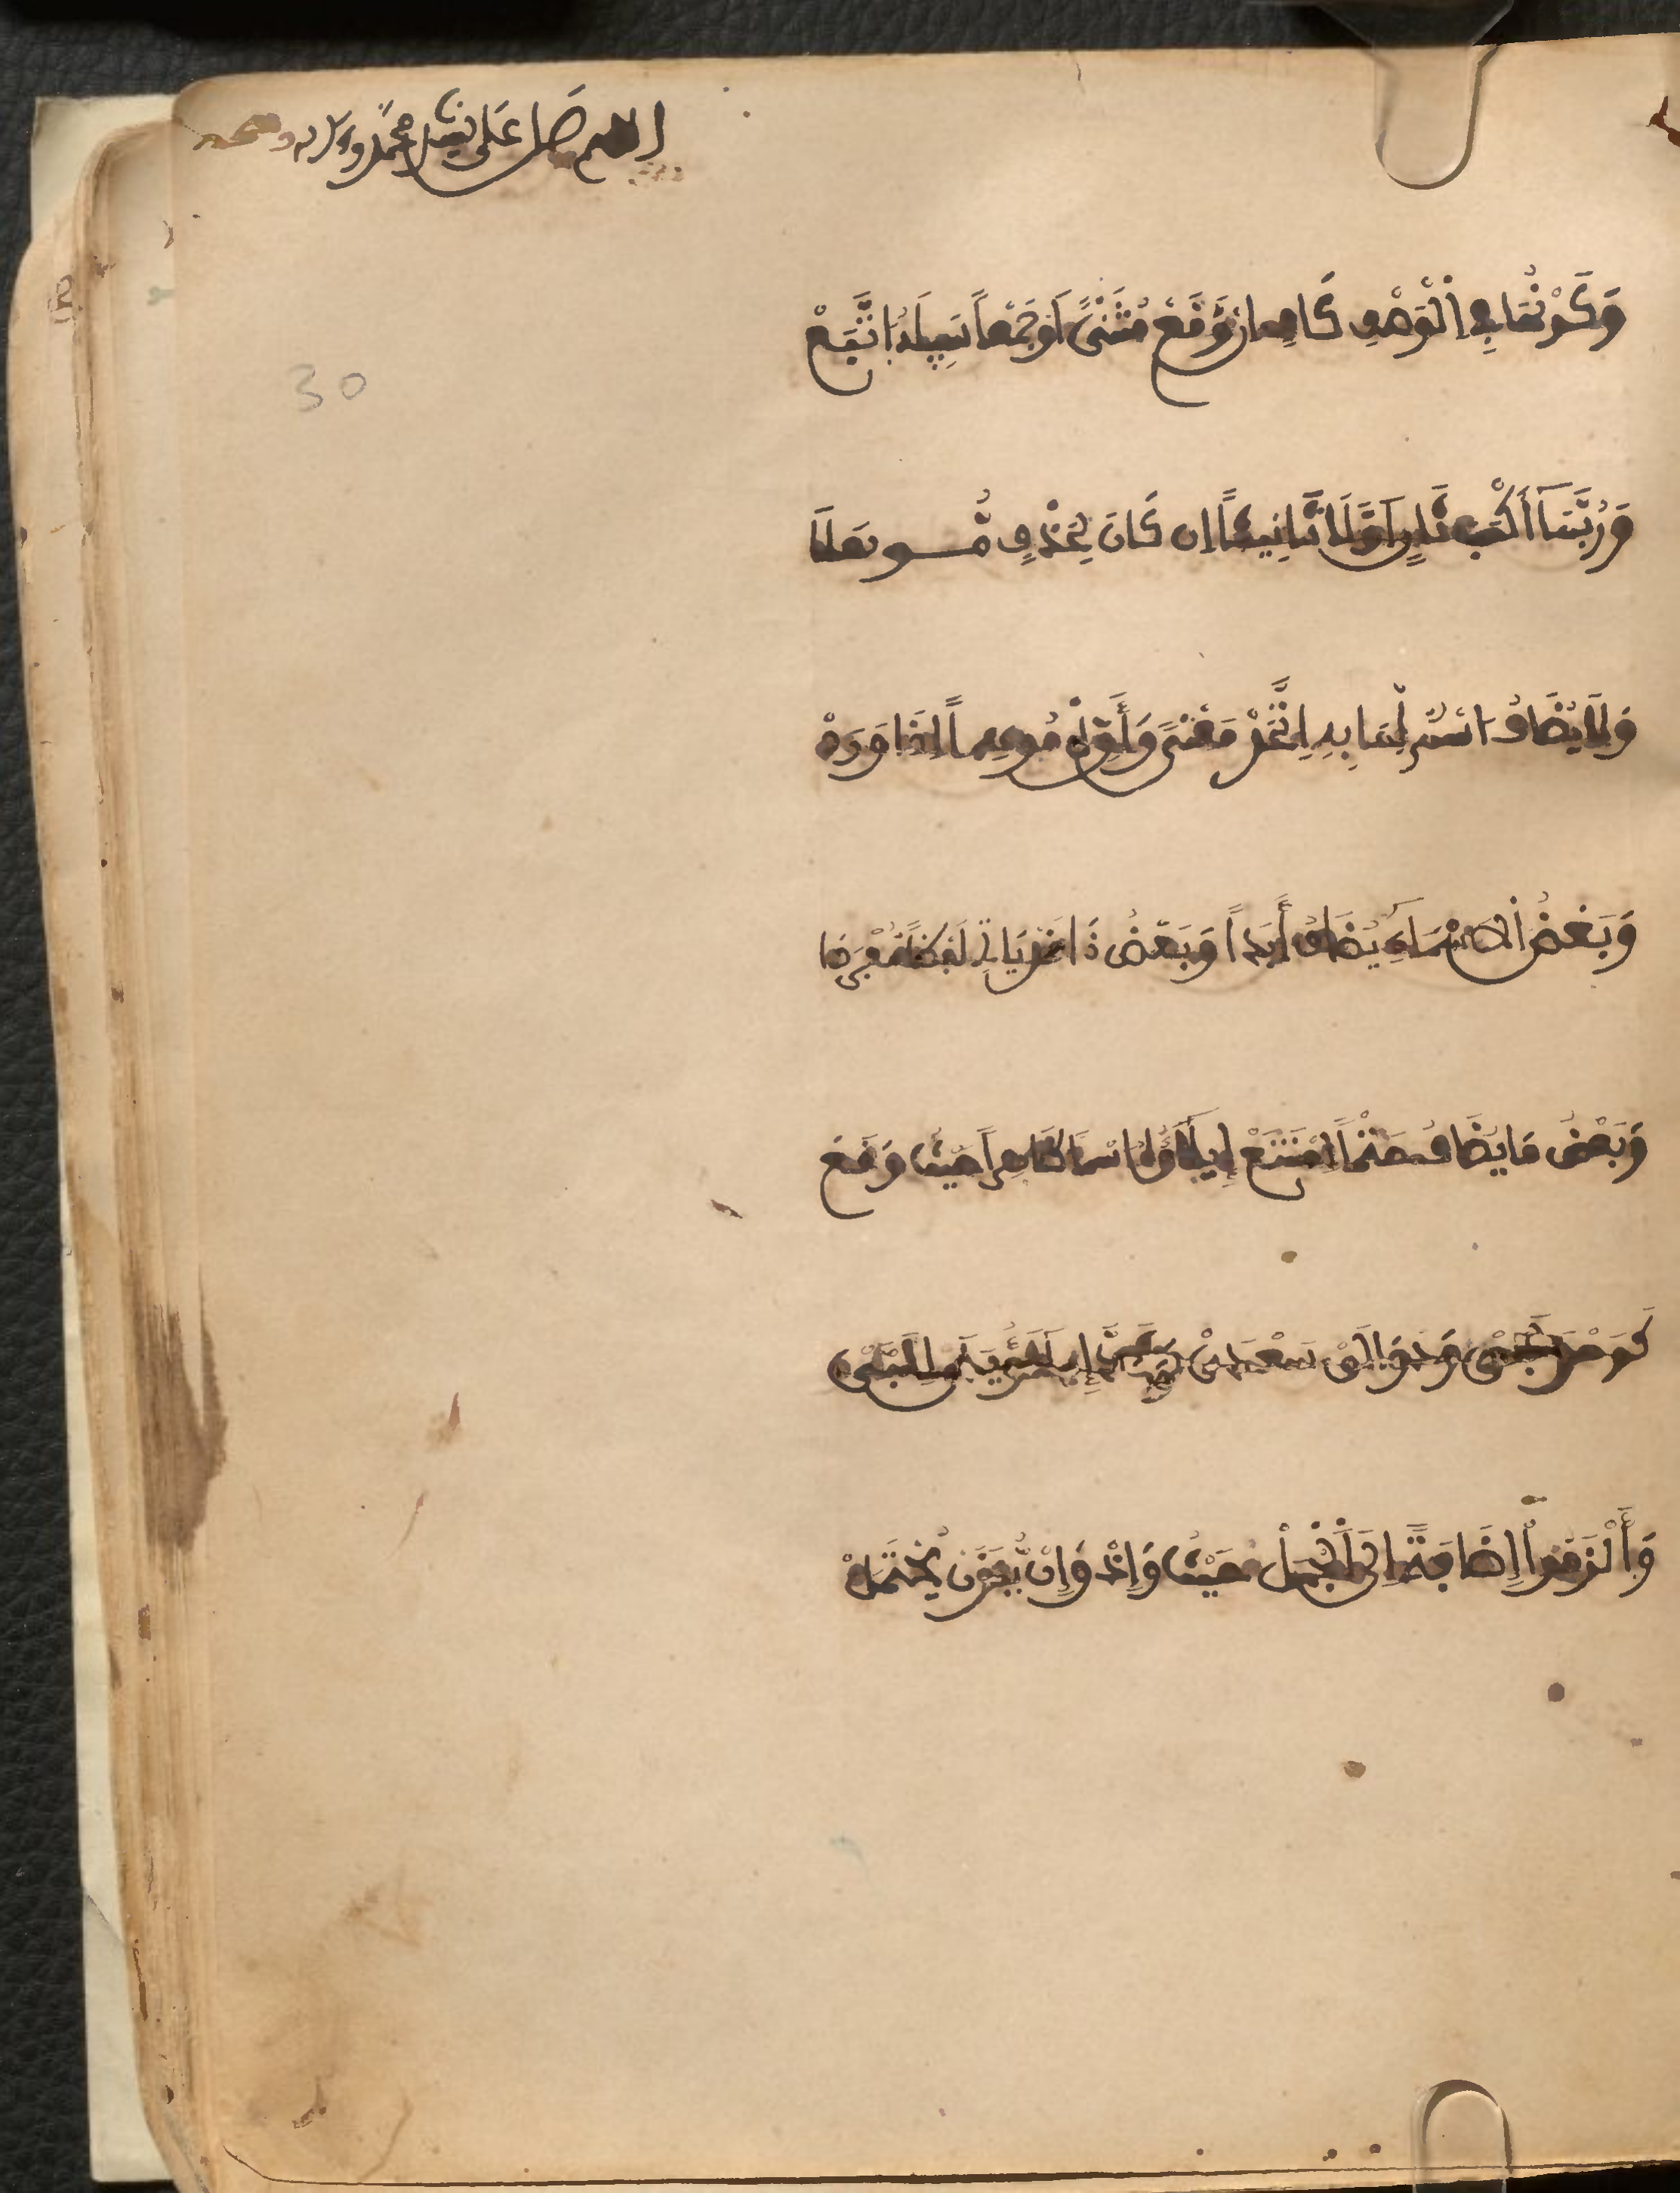 اللهم صل على نبينا محمد وءاله وصحبه
وَكَوْنُهَا فِي الْوَصْفِ كَافٍ ان وَقَعْ مُثَنًّى اَوْ جَمْعاً سَبِيلَهُ اتَّبَعْ
وَرُبَّمَا أَكْسَبَ ثَانٍ اَوَّلَا تَانِيثاً إن كَانَ لِحَذْفٍ مُّوهَلَا
وَلَا يُضَافُ اسْمٌ لِّمَا بِهِ اِتَّحَدْ مَعْنىً وَأَوِّلْ مُوهِماً اِذَا وَرَدْ
وَبَعْضُ الَاسْمَاءِ يُضَافُ أَبَداً وَبَعْضُ ذَا قَدْ يَاتِ لَفْظاً مُّفْرَدَا
وَبَعْضُ مَا يُضَافُ حَتْماً اِمْتَنَعْ إِيلَاؤُهُ اسْماً ظَاهِراً حَيْثُ وَقَعْ
كَوَحْدَ لَبَّيْ وَدَوَالَيْ سَعْدَيْ وَشَذَّ إِيلَاءُ يَدَيْ لِلَبَّيْ
وَأَلْزَمُوا إِضَافَةً اِلَى الْجُمَلْ حَيْثُ وَإِذْ وَإِنْ يُّنَوَّنْ يُحْتَمَلْ
30